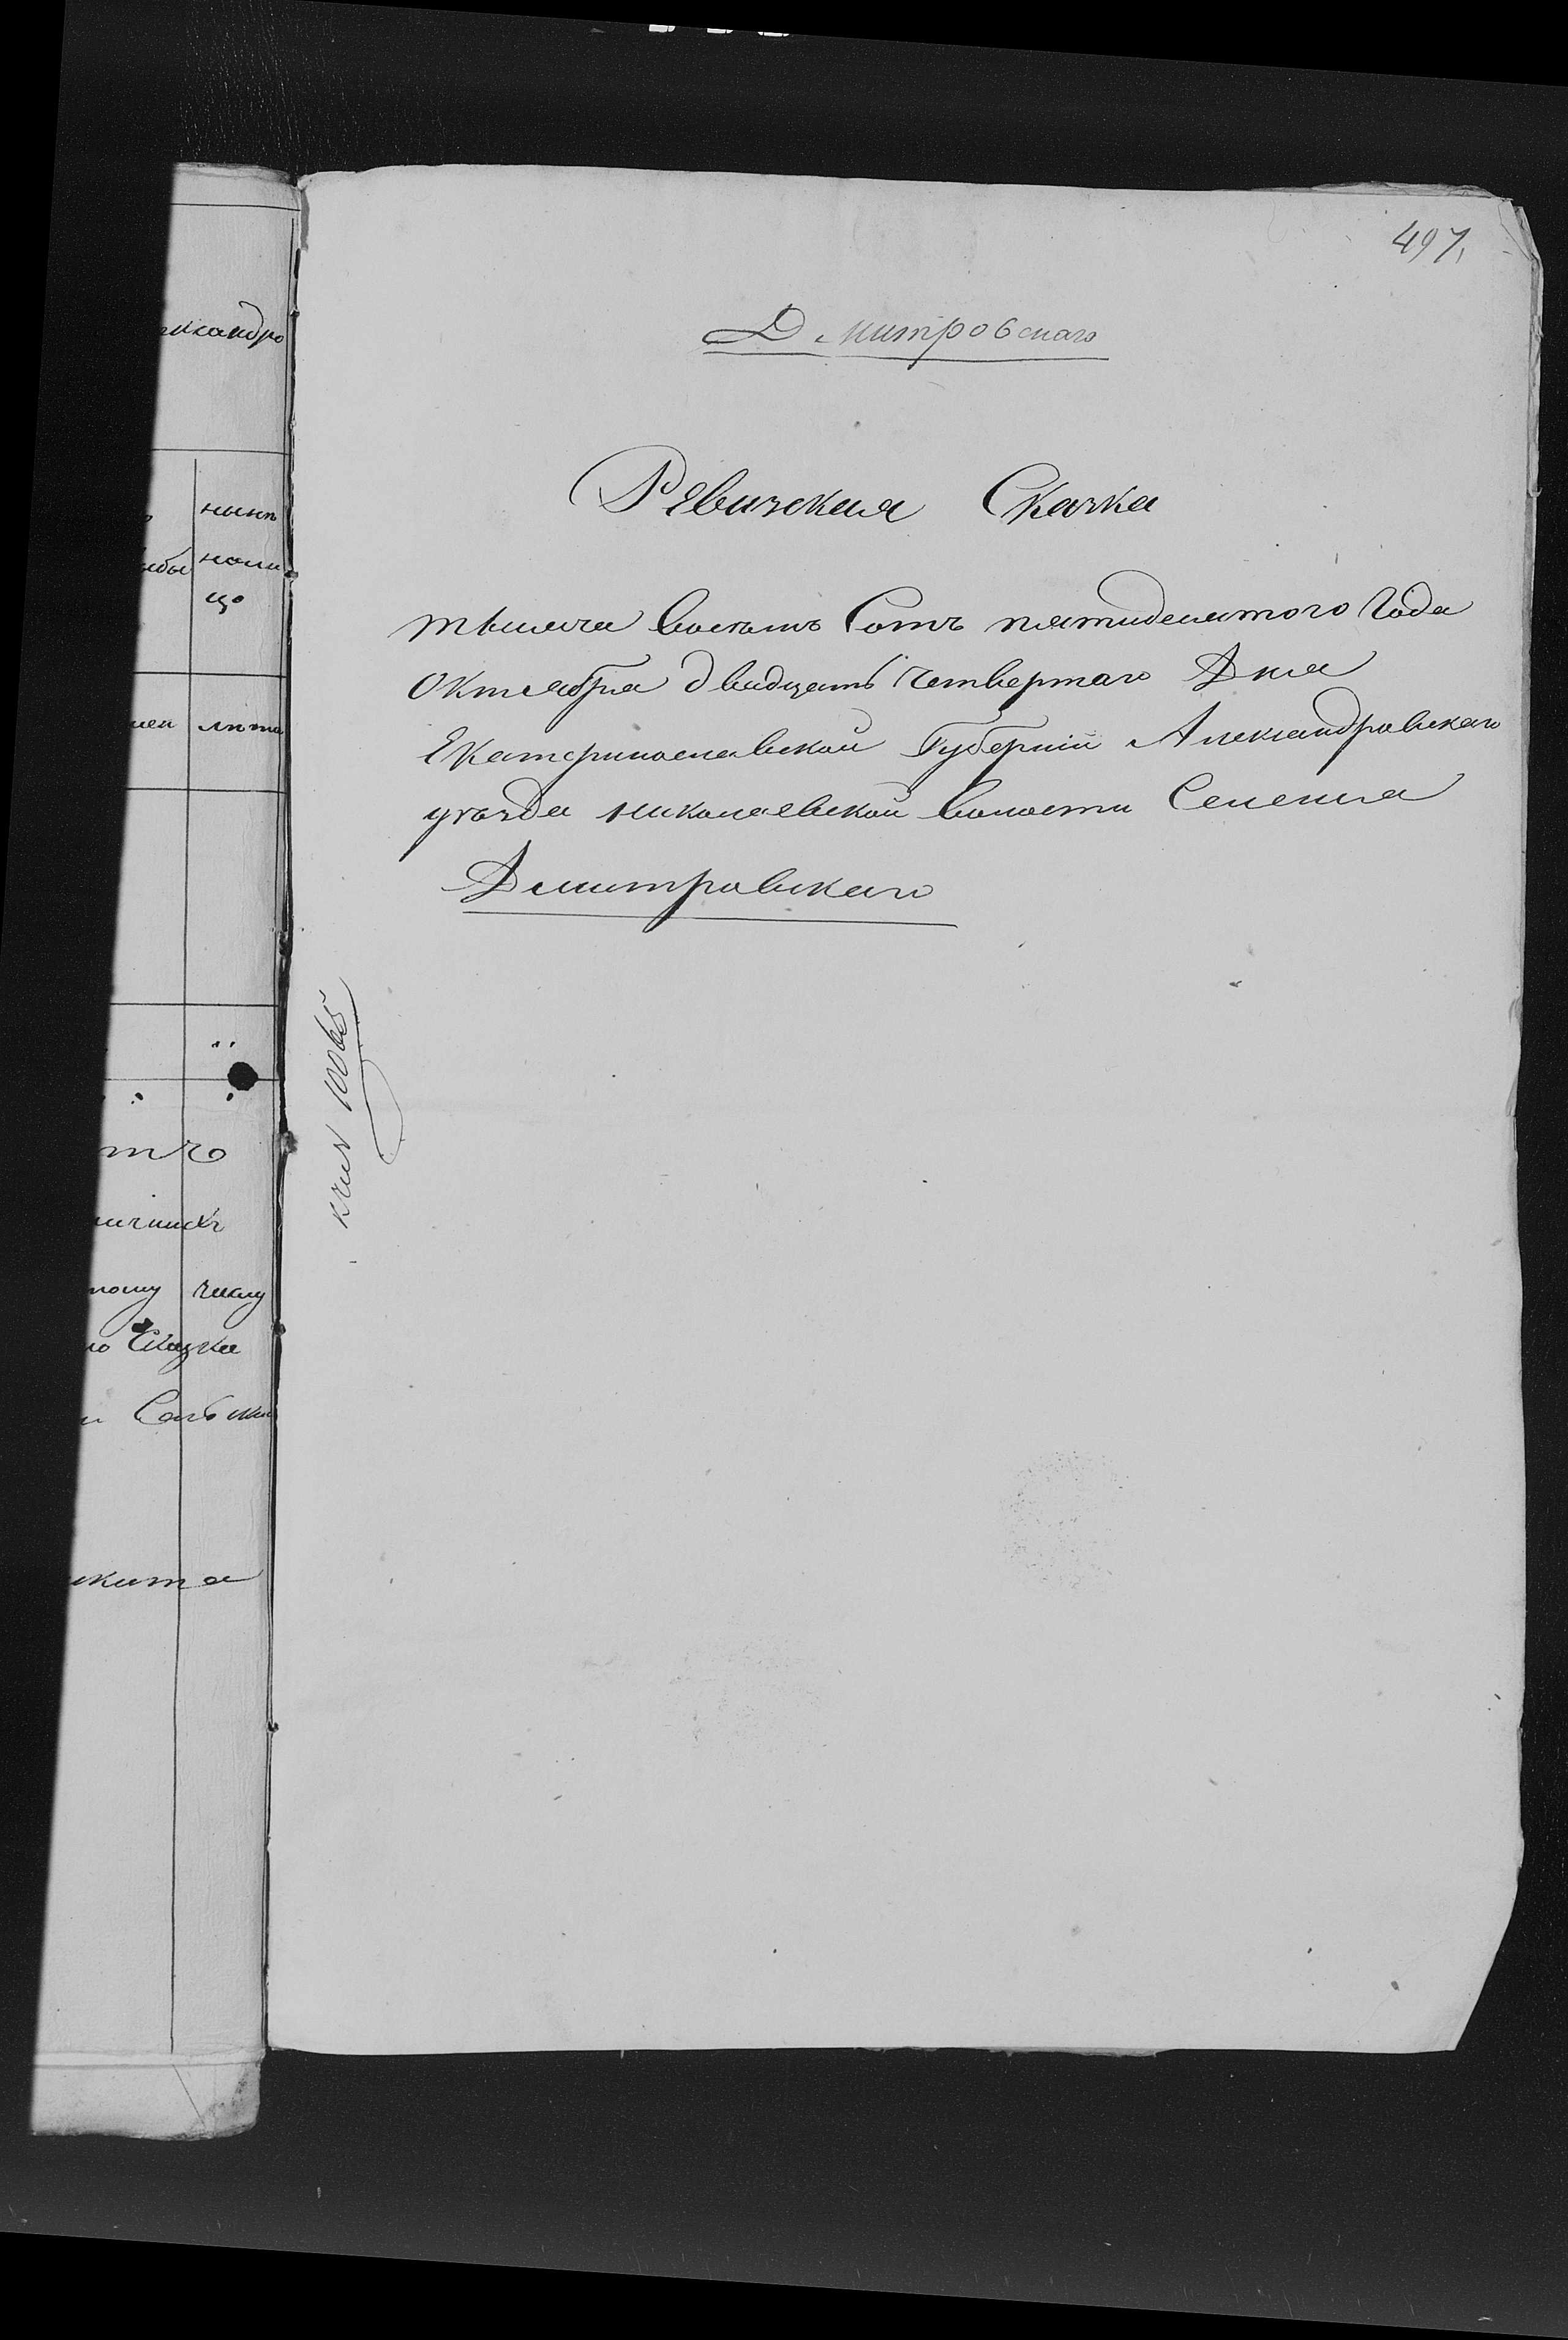 497,
Дмитровскаго
Ревизская Сказка
тысяча восемь Сотъ пятидесятого Года
Октября двадцать четвертаго Дня
Екатеринославской Губерніи Александровскаго
уѣзда николаевской волости Селенія
Дмитровскаго
10065
нынѣ
лѣта
числу
Сказка